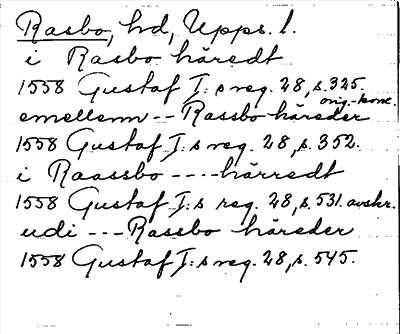 Rasbo, hd, Upps. l.
i Rasbo häredt
1558 Gustaf I:s reg. 28, s. 325.
orig.-konc.
emellenn -- Rassbo häreder
1558 Gustaf I:s reg. 28, s. 352.
i Raassbo ---- härredt
1558 Gustaf I:s reg. 28, s. 531. avskr.
udi --- Rassbo häreder
1558 Gustaf I:s reg. 28, s. 545.